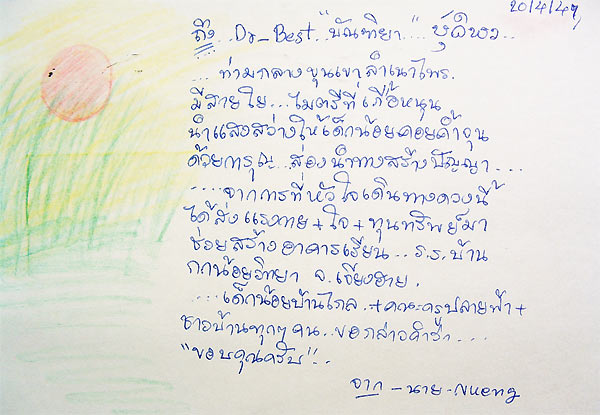 20/4/49
ถึง.. Dr_Best "บัณฑิยา".. ...
... ท่ามกลางขุนเขาลำเนาไพร.
มีสายใย... ไมตรีที่เกื้อหนุน
นำแสงสว่างให้เด็กน้อยคอยค้ำจุน
ด้วยการุณ.. ส่องนำทางสร้างปัญญา...
.... จากการที่หัวใจเดินทางดวงนี้
ได้ส่งแรงกาย+ใจ+ทุนทรัพย์มา
ช่วยสร้างอาคารเรียน.. ร.ร.บ้าน
กกน้อยวิทยา จ.เชียงราย.
.... เด็กน้อยบ้านไกล.+คณะครูปลายฟ้า+
ชาวบ้านทุกๆคน.. ขอกล่าวคำว่า....
"ขอบคุณครับ"..
จาก -นาย-Nueng